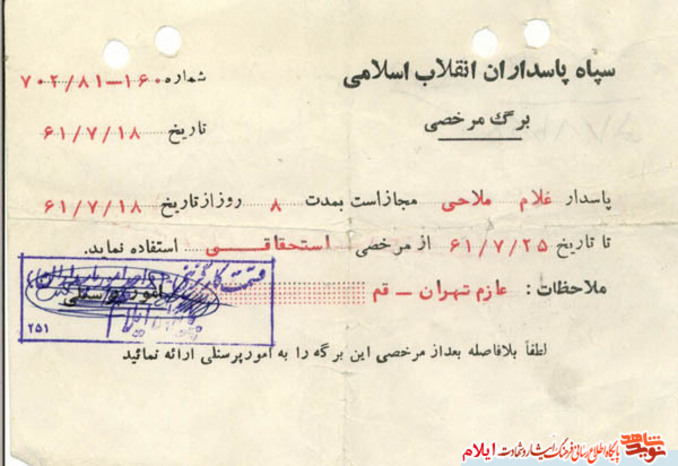 سپاه پاسداران انقلاب اسلامی
شماره ۷۰۲/۸۱-۱۶۰
برگ مرخصی
تاریخ ۶۱/۷/۱۸
پاسدار غلام ملاحی مجاز است بمدت ۸ روز از تاریخ ۶۱/۷/۱۸
تا تاریخ ۶۱/۷/۲۵ از مرخصی استحقاقی استفاده نماید.
ملاحظات: عازم تهران - قم
قسمت کارگزینی
۲۵۱
لطفاً بلافاصله بعد از مرخصی این برگه را به امور پرسنلی ارائه نمائید
نوید شاهد
پایگاه اطلاع رسانی فرهنگ ایثار و شهادت ایلام